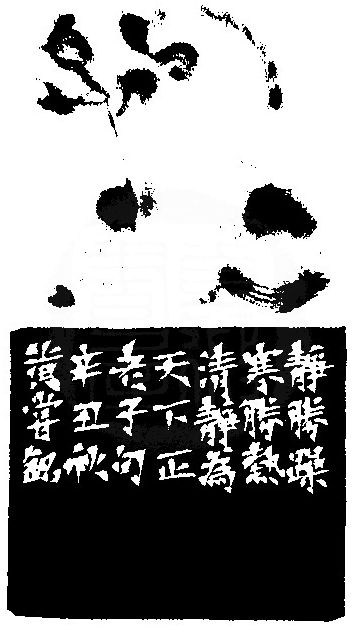 靜勝躁
寒勝熱
清靜為
天下正
老子句
辛丑秋
黃嘗銘